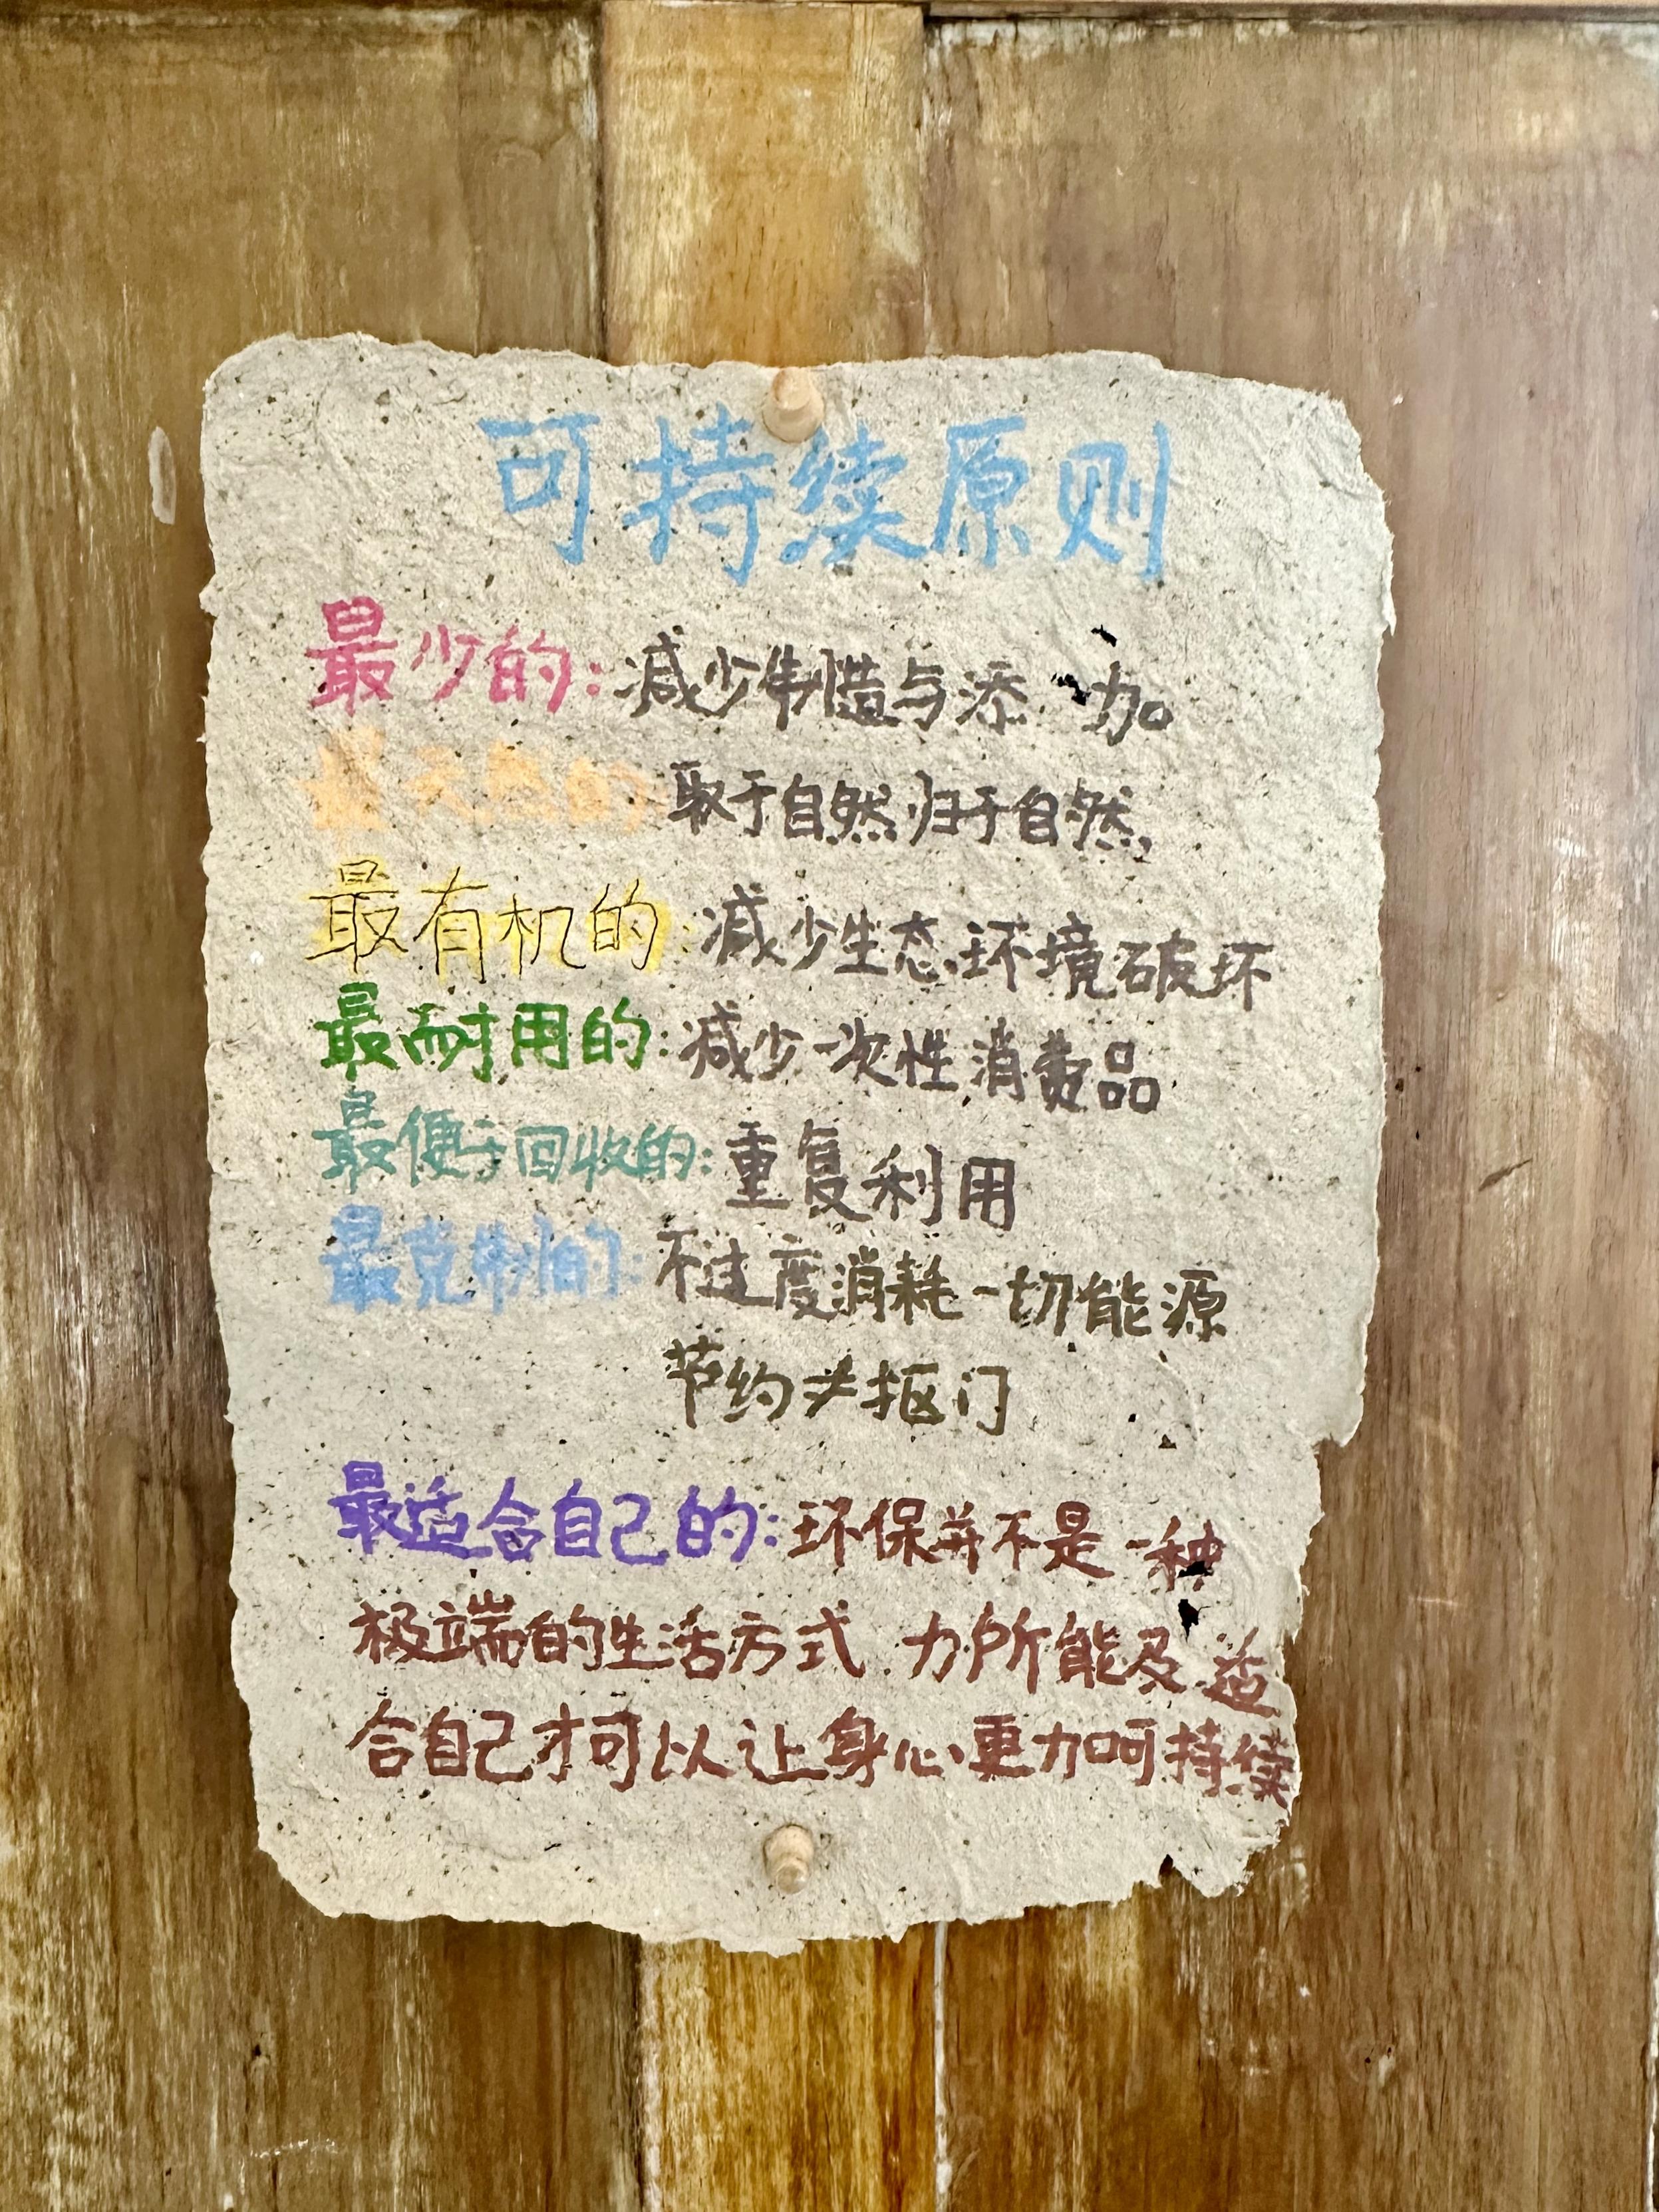 可持续原则
最少的：减少制造与添加。
最天然的 取于自然 归于自然，
最有机的：减少生态环境破坏
最耐用的：减少一次性消费品
最便于回收的：重复利用
最克制的：不过度消耗一切能源
节约≠抠门
最适合自己的：环保并不是一种
极端的生活方式 力所能及 适
合自己才可以让身心更加可持续